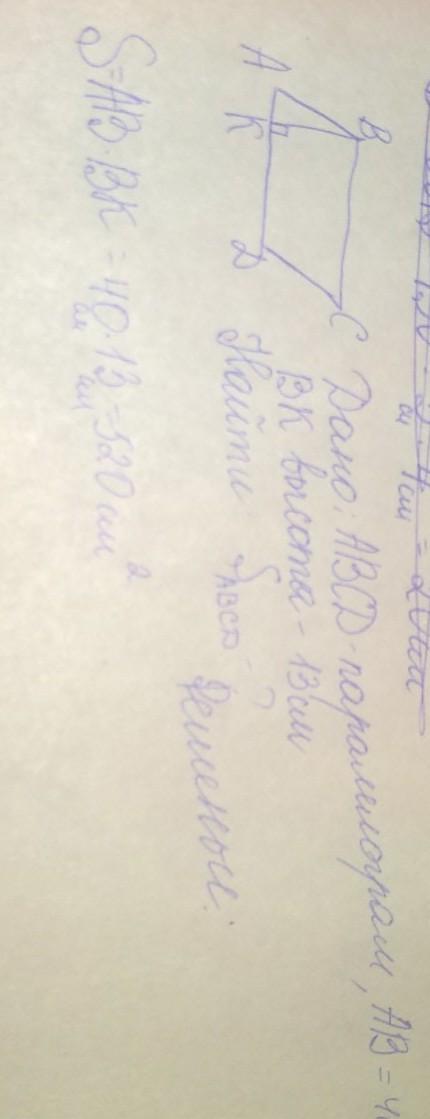 A
B
K
D
C
Дано: ABCD-параммлограм, AB=4
BK высота - 13 см
Найти S ABCD - ?
Решение:
S=AB·BK = 40·13=520 см²
см см